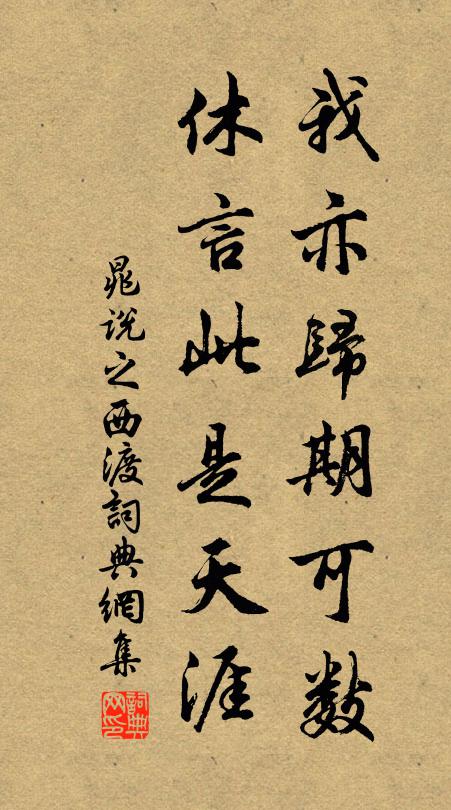 我亦歸期可数
休言此是天涯
晁說之西渡詞典網集
詞典
网印